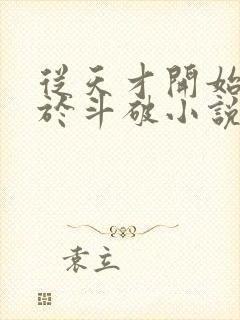 從天才開始
於斗破小說
袁立